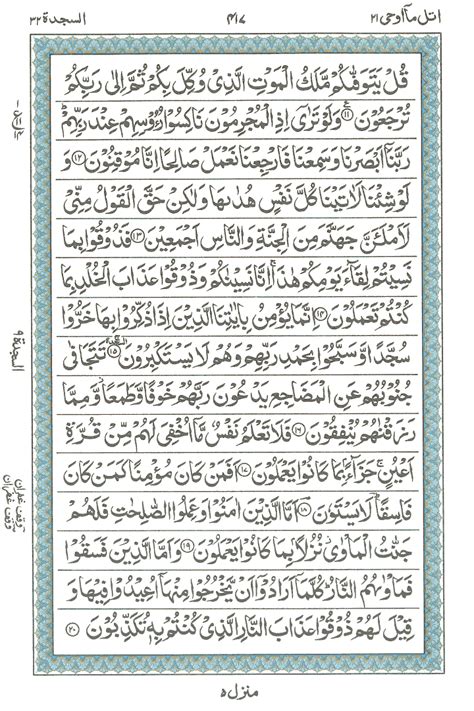 اتل مآ اوحی ۲۱
۴۱۷
السجدة ۳۲
قُلْ يَتَوَفّٰىكُمْ مَّلَكُ الْمَوْتِ الَّذِيْ وُكِّلَ بِكُمْ ثُمَّ اِلٰى رَبِّكُمْ
تُرْجَعُوْنَ ۱۱ وَلَوْ تَرٰٓى اِذِ الْمُجْرِمُوْنَ نَاكِسُوْا رُءُوْسِهِمْ عِنْدَ رَبِّهِمْ ؕ
رَبَّنَاۤ اَبْصَرْنَا وَسَمِعْنَا فَارْجِعْنَا نَعْمَلْ صَالِحًا اِنَّا مُوْقِنُوْنَ ۱۲ وَ
لَوْ شِئْنَا لَاٰتَيْنَا كُلَّ نَفْسٍ هُدٰىهَا وَلٰكِنْ حَقَّ الْقَوْلُ مِنِّيْ
لَاَمْلَـَٔنَّ جَهَنَّمَ مِنَ الْجِنَّةِ وَالنَّاسِ اَجْمَعِيْنَ ۱۳ فَذُوْقُوْا بِمَا
نَسِيْتُمْ لِقَآءَ يَوْمِكُمْ هٰذَا ۚ اِنَّا نَسِيْنٰكُمْ وَذُوْقُوْا عَذَابَ الْخُلْدِ بِمَا
كُنْتُمْ تَعْمَلُوْنَ ۱۴ اِنَّمَا يُؤْمِنُ بِاٰيٰتِنَا الَّذِيْنَ اِذَا ذُكِّرُوْا بِهَا خَرُّوْا
سُجَّدًا وَّسَبَّحُوْا بِحَمْدِ رَبِّهِمْ وَهُمْ لَا يَسْتَكْبِرُوْنَ ۱۵ تَتَجَافٰى
جُنُوْبُهُمْ عَنِ الْمَضَاجِعِ يَدْعُوْنَ رَبَّهُمْ خَوْفًا وَّطَمَعًا وَّمِمَّا
رَزَقْنٰهُمْ يُنْفِقُوْنَ ۱۶ فَلَا تَعْلَمُ نَفْسٌ مَّاۤ اُخْفِيَ لَهُمْ مِّنْ قُرَّةِ
اَعْيُنٍ ۚ جَزَآءًۢ بِمَا كَانُوْا يَعْمَلُوْنَ ۱۷ اَفَمَنْ كَانَ مُؤْمِنًا كَمَنْ كَانَ
فَاسِقًا ؕ لَا يَسْتَوٗنَ ۱۸ اَمَّا الَّذِيْنَ اٰمَنُوْا وَعَمِلُوا الصّٰلِحٰتِ فَلَهُمْ
جَنّٰتُ الْمَاْوٰى نُزُلًۢا بِمَا كَانُوْا يَعْمَلُوْنَ ۱۹ وَاَمَّا الَّذِيْنَ فَسَقُوْا
فَمَاْوٰىهُمُ النَّارُ كُلَّمَاۤ اَرَادُوْۤا اَنْ يَّخْرُجُوْا مِنْهَاۤ اُعِيْدُوْا فِيْهَا وَ
قِيْلَ لَهُمْ ذُوْقُوْا عَذَابَ النَّارِ الَّذِيْ كُنْتُمْ بِهٖ تُكَذِّبُوْنَ ۲۰
السجدة ۹
وقف غفران
وقف غفران
منزل ۵